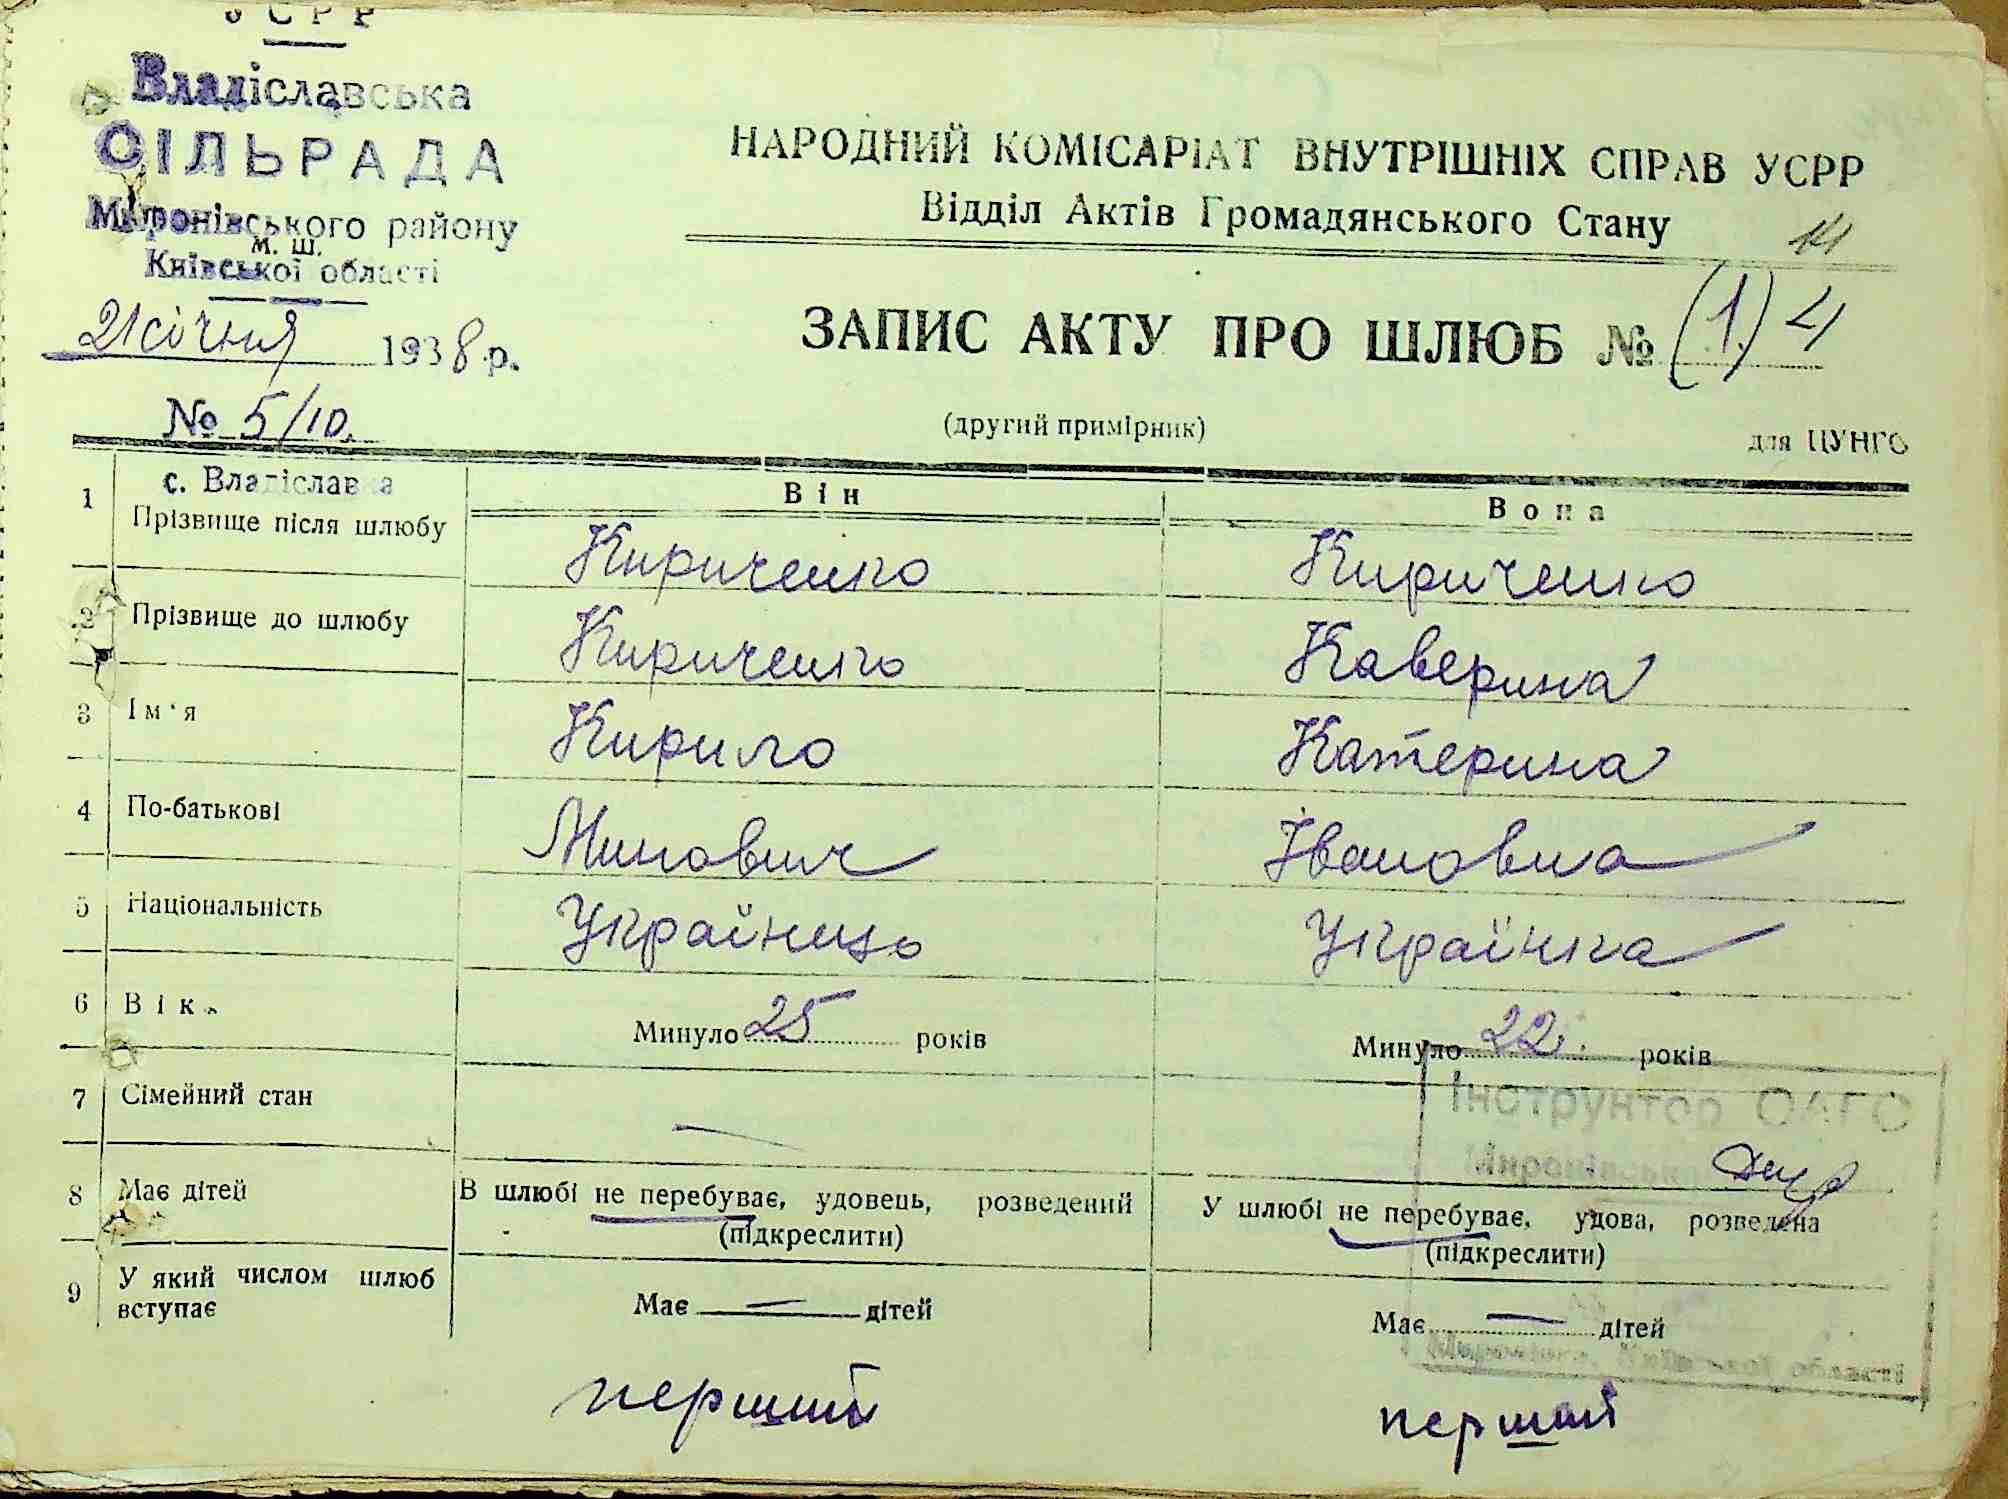 УСРР
Владіславська
СІЛЬРАДА
Миронівського району
м. Ш.
Київської області
21 січня 1938 р.
№ 5/10.
НАРОДНИЙ КОМІСАРІАТ ВНУТРІШНІХ СПРАВ УСРР
Відділ Актів Громадянського Стану
ЗАПИС АКТУ ПРО ШЛЮБ № (1.) 4
(другий примірник)
для ЦУНГО
с. Владіславка
Він Вона
1 Прізвище після шлюбу Кириченко Кириченко
2 Прізвище до шлюбу Кириченко Каверина
3 Ім'я Кирило Катерина
4 По-батькові Минович Івановна
5 Національність Українець Українка
6 Вік Минуло 25 років Минуло 22. років
7 Сімейний стан —
Інструктор ОАГС
8 Має дітей В шлюбі не перебуває, удовець, розведений У шлюбі не перебуває, удова, розведена
(підкреслити) (підкреслити)
9 У який числом шлюб вступає Має — дітей Має — дітей
Київської області
перший перший